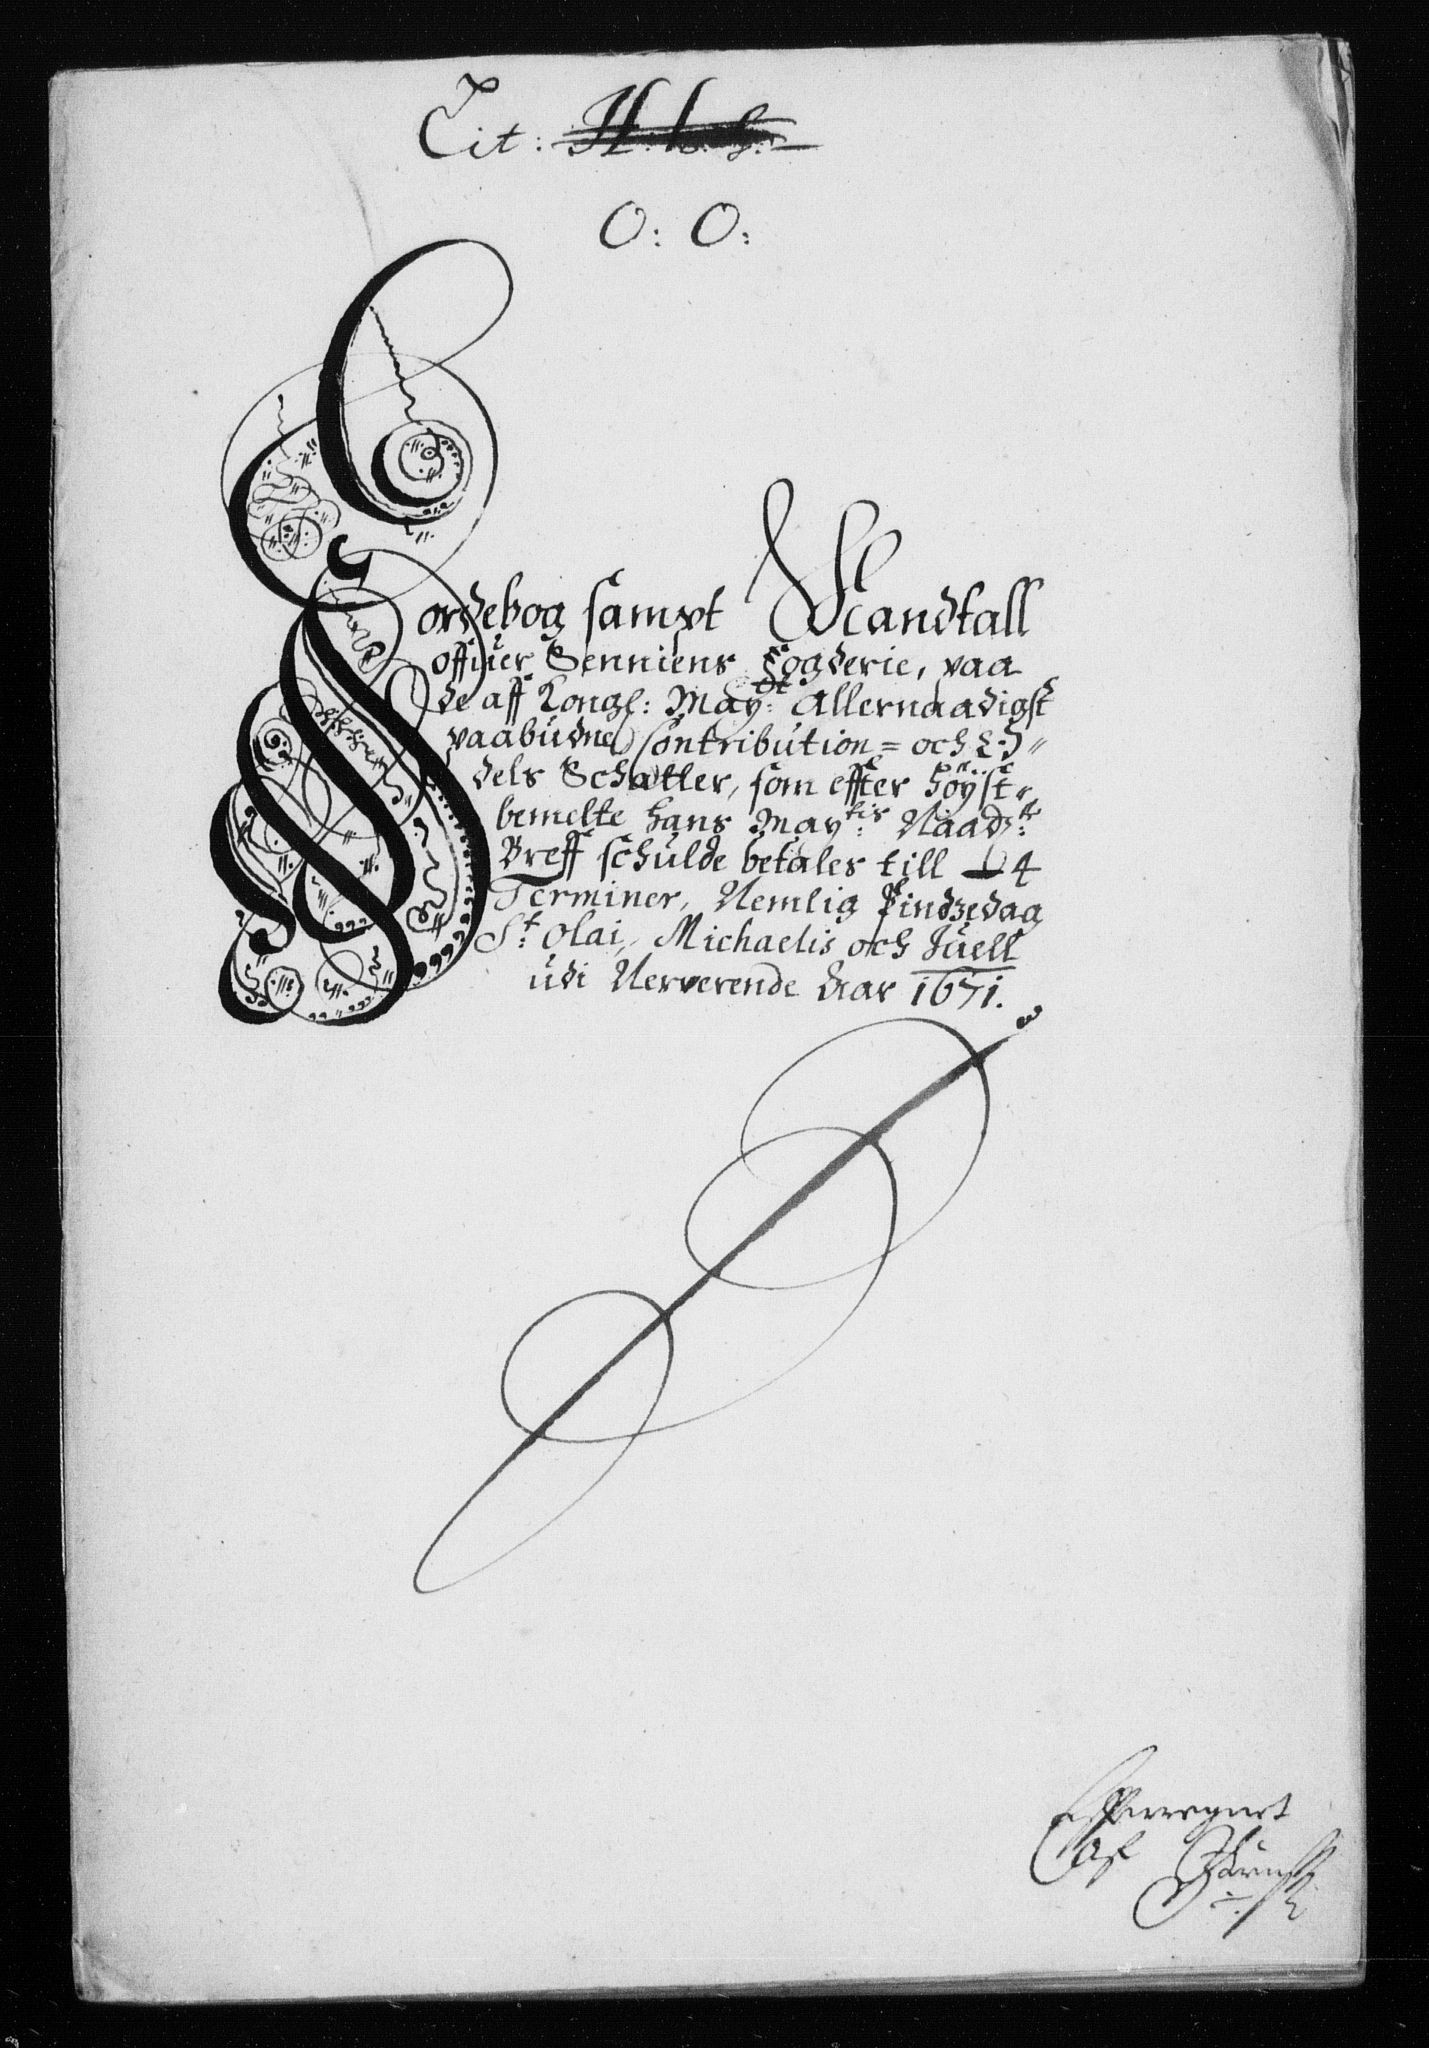 Tit: H: L: S:
O: O:
Jordebog sampt Mandtall
offuer Senniens fogderie, paa
de aff Kongl: May:dt Allernaadigst
paabudne Contribution= och LJ"
dels Schatter, som effter höyst"
bemelte hans May:tis Naad:te
Breff schulde betales till 4
Terminer, Nemlig Pindzedag
S:t Olai, Michaelis och Juell
udi Nerverende Aar 1671.
Efferregnet
Af